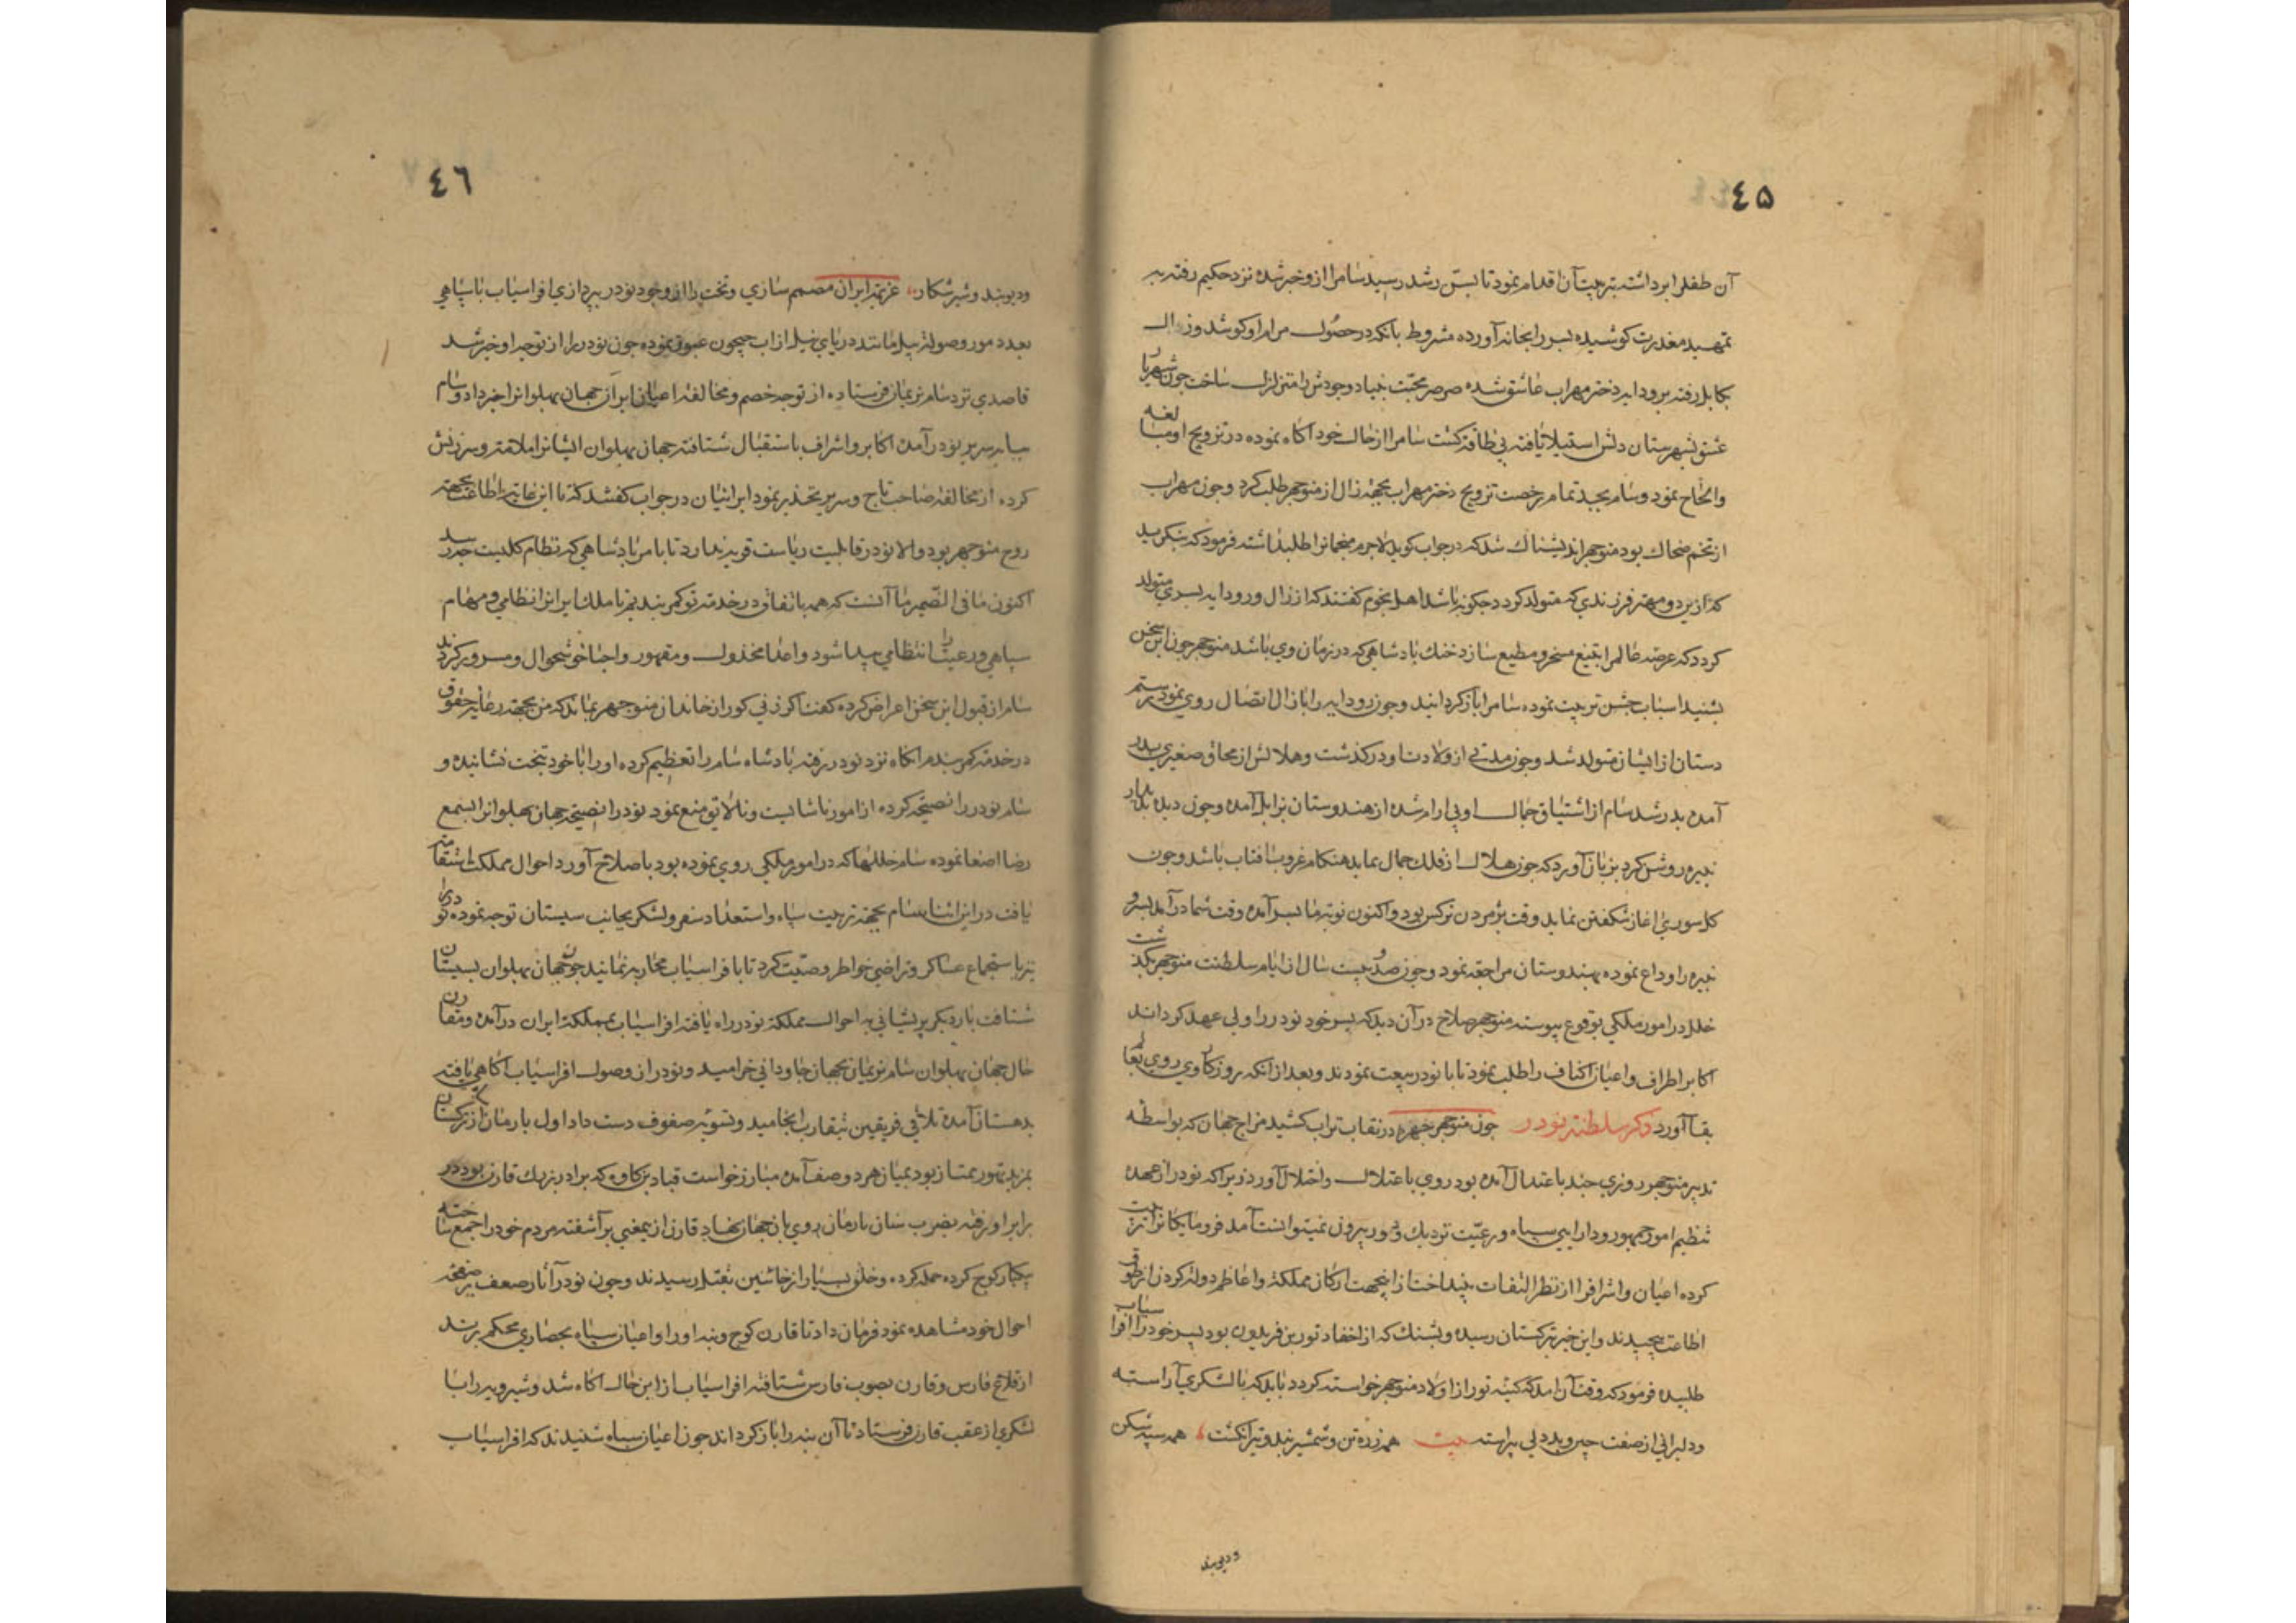 ٤٥
آن طفلرا برداشته بتربیت آن اقدام نمود تا بسن رشد رسید سام را ازو خبر شده نزد حکیم رفته به
تمهید معذرت کوشیده پسر را بخانه آورده مشروط بانکه در حصول مرام او کوشد و زال
بکابل رفته برودابه دختر مهراب عاشق شده صرصر محبت بنیاد وجودش را متزلزل ساخت چون شهریار
عشق بشهرستان دلش استیلا یافته بی طاقت کشت سام را از حال خود آکاه نموده در تزویج او مبالغه
والحاح نمود و سام بجد تمام رخصت تزویج دختر مهراب بجهة زال از منوچهر طلب کرد و چون مهراب
از تخم ضحاک بود منوچهر اندیشناک شد که در جواب کوید لاجرم منجمانرا طلب داشته فرمود که بنکرید
که از این دو مهتر فرزندی که متولد کردد چکونه باشد اهل نجوم کفتند که از زال و رودابه پسری متولد
کردد که عرصه عالم را بتیغ مسخر و مطیع سازد خنک پادشاهی که در زمان وی باشد منوچهر چون این سخن
بشنید اسباب جشن تربیت نموده سام را باز کردانید و چون رودابه را با زال اتصال روی نمود رستم
دستان از ایشان متولد شد و چون مدتی از ولادت او درکذشت و هلالش از محاق صغیری بدر
آمده بدر شد سام از اشتیاق جمال او بی ارام شده از هندوستان بزابل آمده و چون دیده بدیدار
نبیره روشن کرد بزبان آورد که چون هلال از فلک جمال نماید هنکام غروب افتاب باشد و چون
کل سوری اغاز شکفتن نماید وقت پژمردن نرکس بود و اکنون نوبة ما بسر آمده وقت شما درآمد پسر و
نبیره را وداع نموده بهندوستان مراجعه نمود و چون صد و بیست سال از ایام سلطنت منوچهر بکذشت
خلل در امور ملکی بوقوع پیوسته منوچهر صلاح در آن دید که پسر خود نودر را ولی عهد کرداند
اکابر اطراف و اعیان اکناف را طلب نمود تا با نودر بیعت نمودند و بعد از آنکه روزکار وی روی بفا
بقا آورد ذکر سلطنة نودر چون منوچهر چهره در نقاب تراب کشید مزاج جهان که بواسطه
تدبیر منوچهر روزی چند باعتدال آمده بود روی باعتلال واختلال آورد زیرا که نودر از عهده
تنظیم امور جمهور و دارایی سپاه و رعیت نزدیک و دور بیرون نمیتوانست آمد فرومایکانرا تربیت
کرده اعیان و اشراف را از نظر التفات بینداخت از اینجهت ارکان مملکة و اعاظم دولة کردن از طوق
اطاعت پیچیدند و این خبر بترکستان رسیده و پشنک که از احفاد تور بن فریدون بود پسر خود را افراسیاب
طلبیده فرمود که وقت آن امد که کینه تور از اولاد منوچهر خواسته کردد باید که با لشکری آراسته
و دلیرانی از صفت جبن و بددلی پیراسته بیت همه زره تن و شمشیر بند و تیر انکشت همه سپه شکن
و دیوبند
٤٦
و دیوبند و شیر شکار عزیمة ایران مصمم سازی و تخت را از وجود نودر بپردازی افراسیاب با سپاهی
بعدد مور و صولة پیل مانند دریای نیل از اب جیحون عبور نموده چون نودر را از توجه او خبر شد
قاصدی نزد سام نریمان فرستاده از توجه خصم و مخالفة اعیان ایران جهان پهلوانرا خبر داد و سام
بپایه سریر نودر آمده اکابر و اشراف باستقبال شتافته جهان پهلوان ایشانرا ملامة و سرزنش
کرده از مخالفة صاحب تاج و سریر تحذیر نمود ایرانیان در جواب کفتند که تا این غایة اطاعت بجهة
روح منوچهر بود والا نودر قابلیت ریاست قریه ندارد تا بامر پادشاهی که نظام کلیست چه رسد
اکنون ما فی الضمیر ما آنست که همه باتفاق در خدمة تو کمر بندیم تا ملک ایرانرا نظامی و مهام
سپاهی و رعیت را انتظامی پیدا شود و اعدا مخذول و مقهور و احبا خوشحال و مسرور کردند
سام از قبول این سخن اعراض کرده کفت اکر زنی کور از خاندان منوچهر بماند که من بجهة رعایة حقوق
در خدمة کمر بندم انکاه نزد نودر رفته پادشاه سام را تعظیم کرده او را با خود بتخت نشانیده و
سام نودر را نصیحة کرده از امور ناشایست و نالایق منع نمود نودر انصیحة جهان پهلوانرا بسمع
رضا اصغا نموده سام خللها که در امور ملکی روی نموده بود باصلاح آورد احوال مملکت استقامة
یافت در این اثنا سام بجهة تربیت سپاه و استعداد سفر و لشکر بجانب سیستان توجه نموده نودر را
نیز باستجماع عساکر و تراضی خواطر وصیت کرد تا با افراسیاب محاربه نمایند چون جهان پهلوان بسیستان
شتافت بار دیکر پریشانی به احوال مملکة نودر راه یافته افراسیاب بمملکة ایران درآمده و مقارن
حال جهان پهلوان سام نریمان بجهان جاودانی خرامید و نودر از وصول افراسیاب آکاهی یافته
بدهستان آمده تلاقی فریقین بتقارب انجامید و تسویه صفوف دست داد اول بارمان از ترکستان که
بمزید تهور ممتاز بود بمیان هر دو صف آمده مبارز خواست قباد بن کاوه که برادر بزرک قارن بود در
برابر او رفته بضرب سنان بارمان روی بان جهان نهاد قارن از یمعنی برآشفته مردم خود را جمع ساخته
بیکبار کوچ کرده حمله کرده و خلق بسیار از جانبین بقتل رسیدند و چون نودر آثار ضعف بر صفحه
احوال خود مشاهده نمود فرمان داد تا قارن کوچ و بنه او را و اعیان سپاه بحصاری محکم برند
از قلاع فارس و قارن بصوب فارس شتافته افراسیاب از این حال آکاه شد و شیرویه را با
لشکری از عقب قارن فرستاد تا آن بنه را باز کرداند چون اعیان سپاه شنیدند که افراسیاب